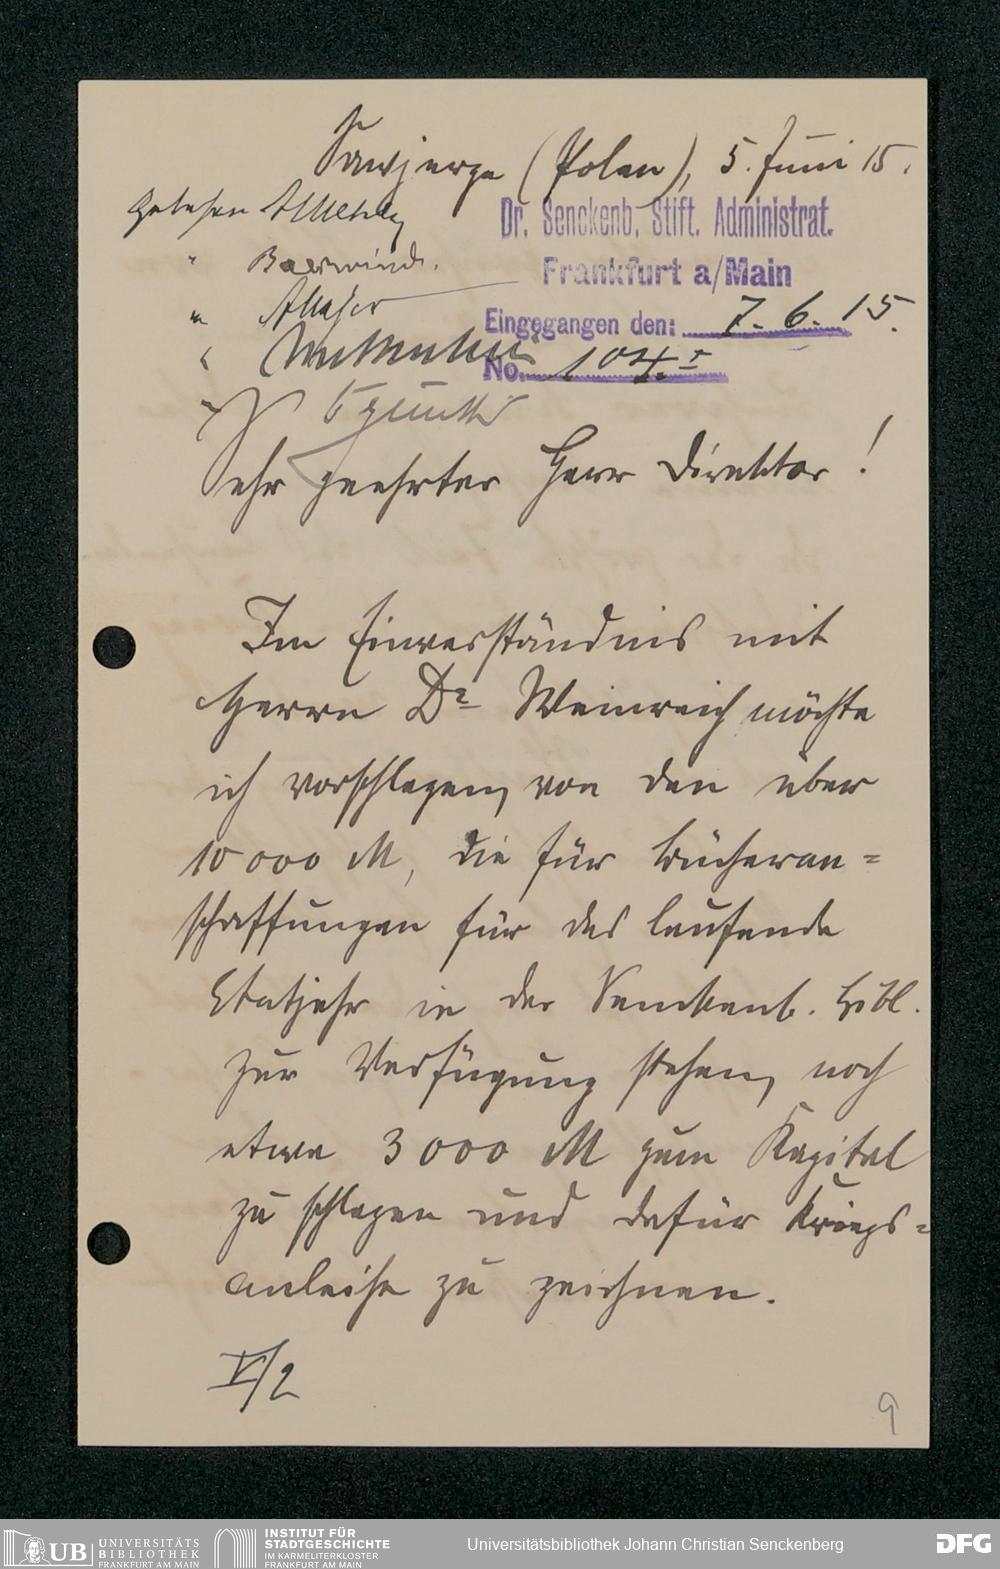 Sawjerze (Polen), 5. Juni 15.
Dr. Senckenb. Stift. Administrat.
Frankfurt a/Main
Eingegangen den: 7. 6. 15.
No. 104.
gelesen
" Baerwind.
"
"
Sehr geehrter Herr Direktor!
Im Einverständnis mit
Herrn Dr Weinreich möchte
ich vorschlagen, von den über
10000 M, die für Bücheran=
schaffungen für das laufende
Etatjahr in der Senckenb. Bibl.
zur Verfügung stehen, noch
etwa 3000 M zum Kapital
zu schlagen und dafür Kriegs=
anleihe zu zeichnen.
V/2
9
UB UNIVERSITÄTS
BIBLIOTHEK
FRANKFURT AM MAIN
INSTITUT FÜR
STADTGESCHICHTE
IM KARMELITERKLOSTER
FRANKFURT AM MAIN
Universitätsbibliothek Johann Christian Senckenberg
DFG